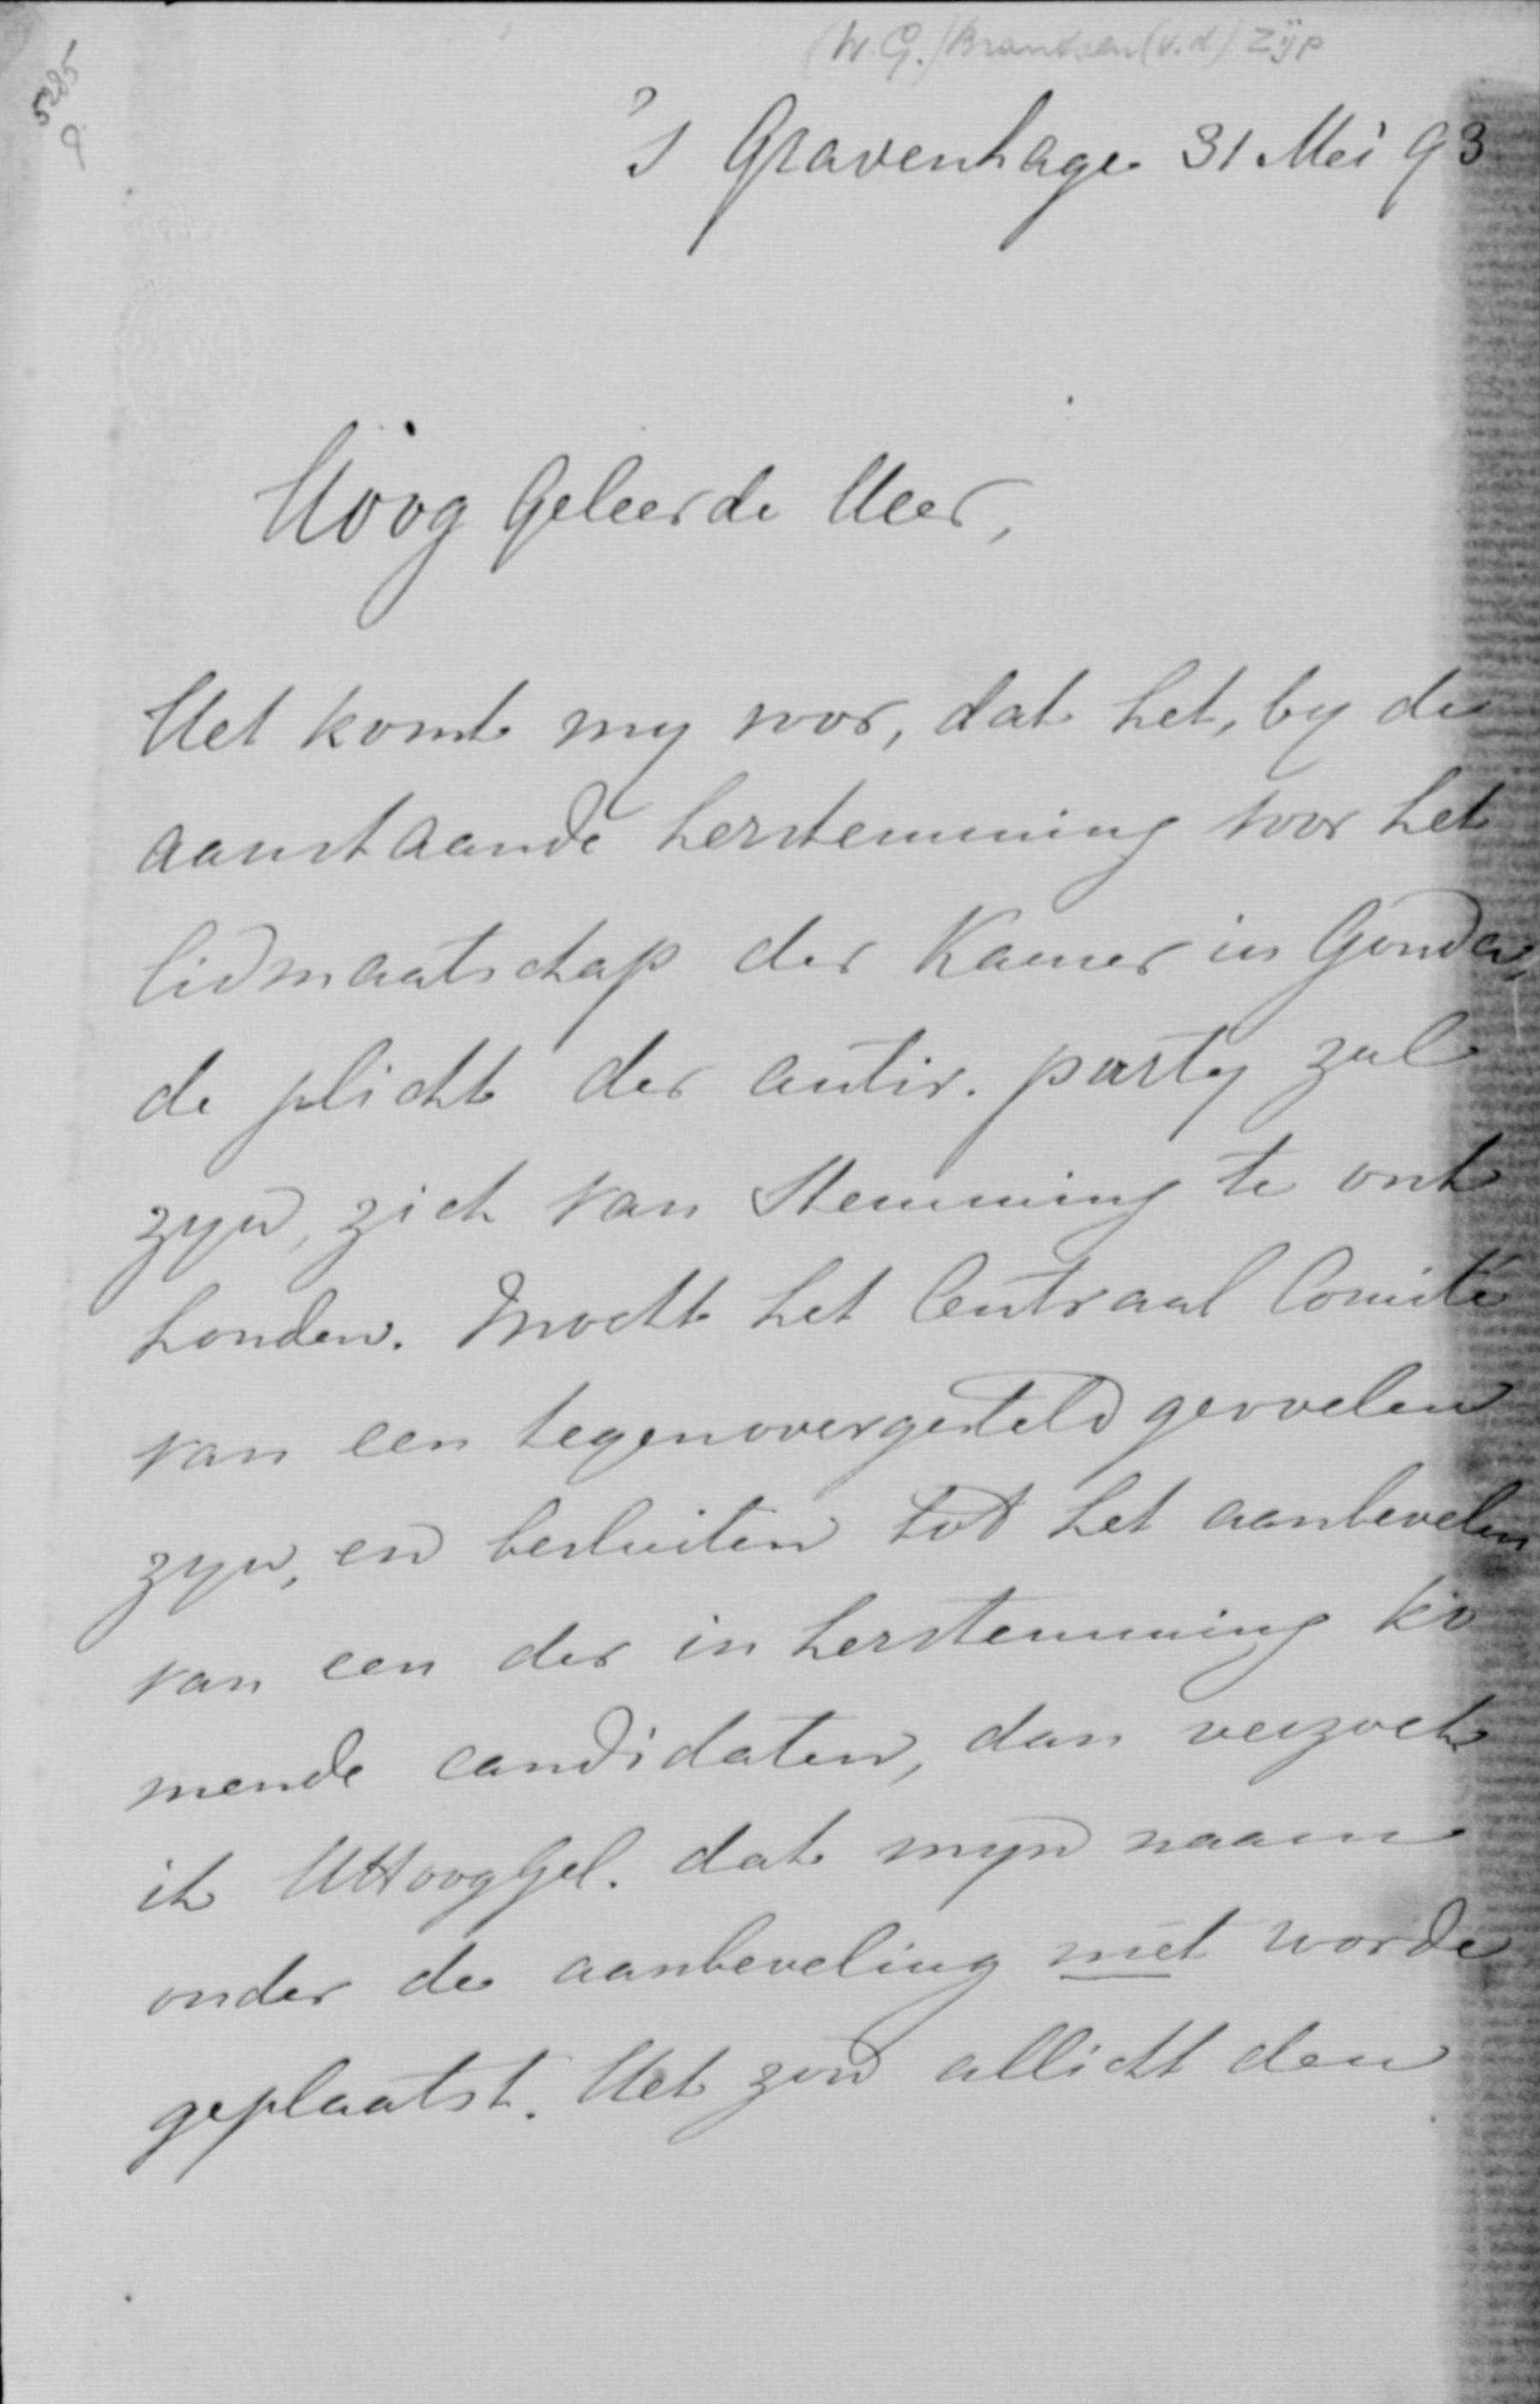 (W.G.) Brantsen (v.d.) Zijp
5285
's Gravenhage 31 Mei 93
Hoog Geleerde Heer,
Het komt my voor, dat het, by de
aanstaande herstemming voor het
lidmaatschap der Kamer in Gouda,
de plicht der antir. party zal
zyn, zich van stemming te ont
houden. Mocht het Centraal Comité
van een tegenovergesteld gevoelen
zyn, en besluiten tot het aanbevelen
van een der in herstemming ko
mende candidaten, dan verzoek
ik UHooggel. dat myn naam
onder de aanbeveling niet worde
geplaatst. Het zou allicht den